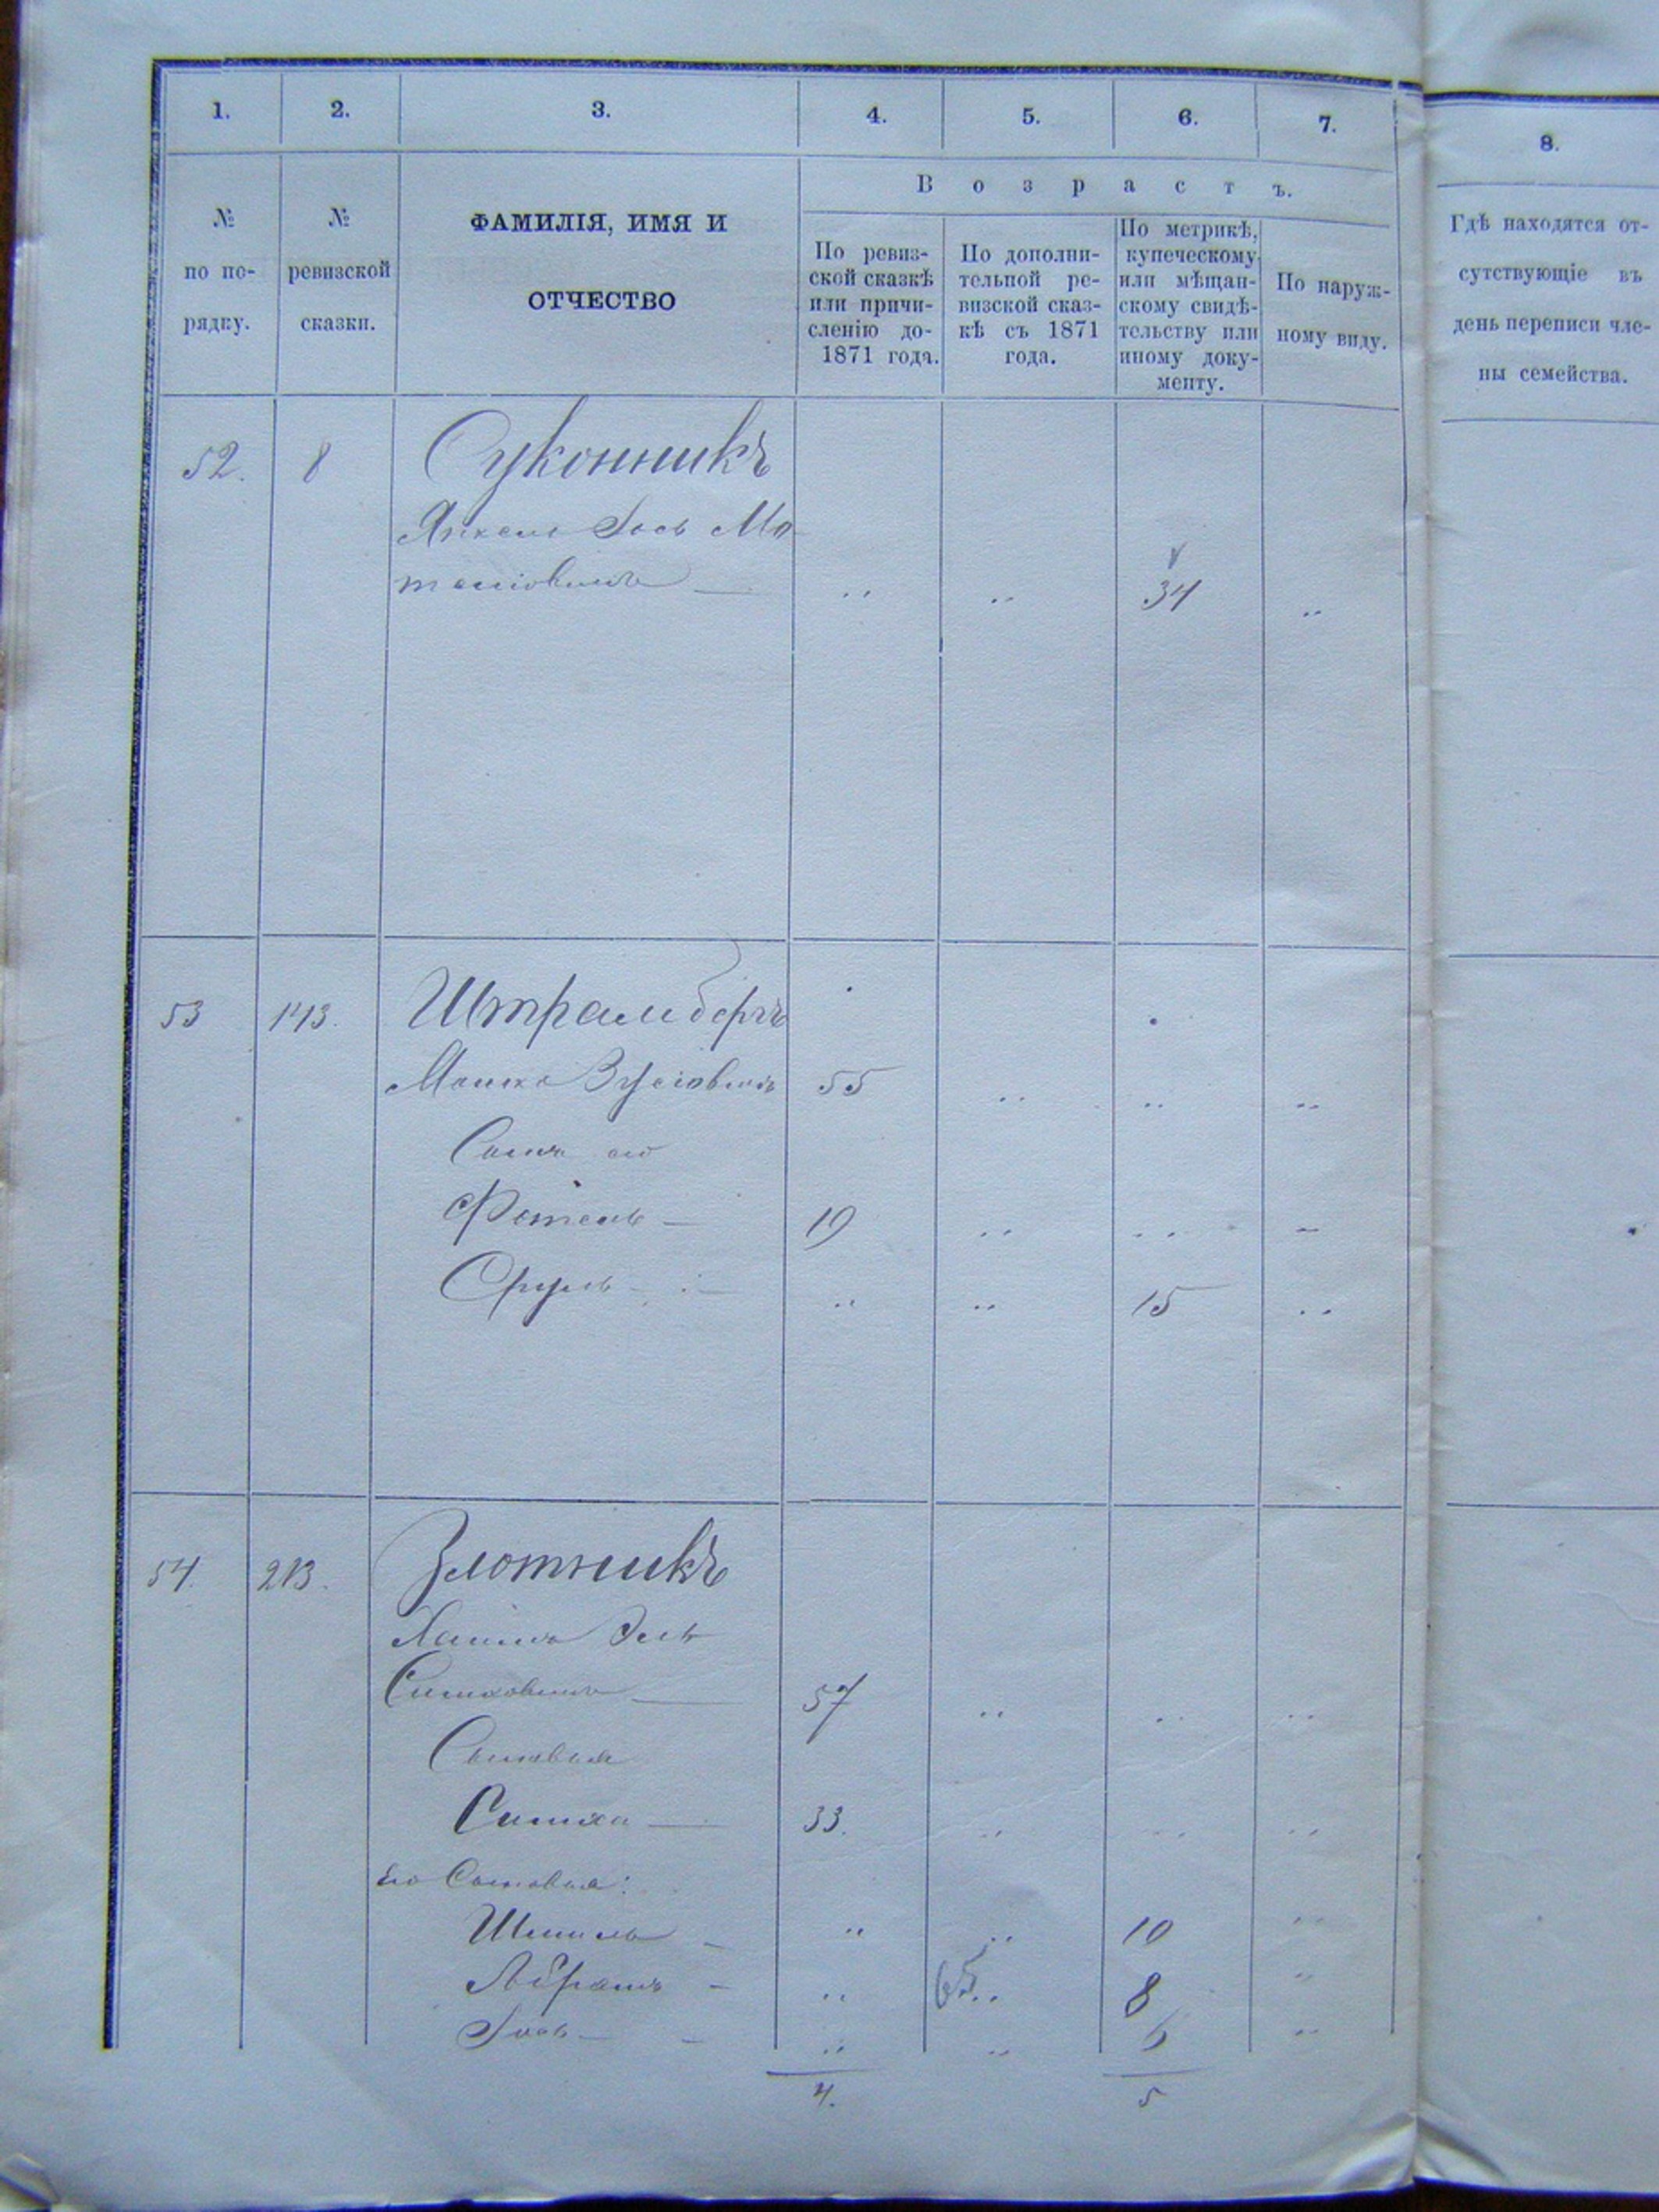 1. 2. 3. 4. 5. 6. 7. 8.
В о з р а с т ъ.
№ по по-
рядку.
№ ревизской
сказки.
ФАМИЛІЯ, ИМЯ И
ОТЧЕСТВО
По ревиз-
ской сказкѣ
или причи-
сленію до-
1871 года.
По дополни-
тельной ре-
визской сказ-
кѣ съ 1871
года.
По метрикѣ,
купеческому
или мѣщан-
скому свидѣ-
тельству или
иному доку-
менту.
По наруж-
ному виду.
Гдѣ находятся от-
сутствующіе въ
день переписи чле-
ны семейства.
52. 8 Суконникъ
Янкель Іось Мо-
34
53 143. Штрамбергъ
Мошко Зусіовичъ 55
Сынъ его
19
Сруль 15
54. 213. Злотникъ
Хаимъ Эль
Симховичъ 57
Сыновья
Симха 33.
Его Сыновья:
Шмиль 10
Абрамъ 65 8
Іось 6
4. 5